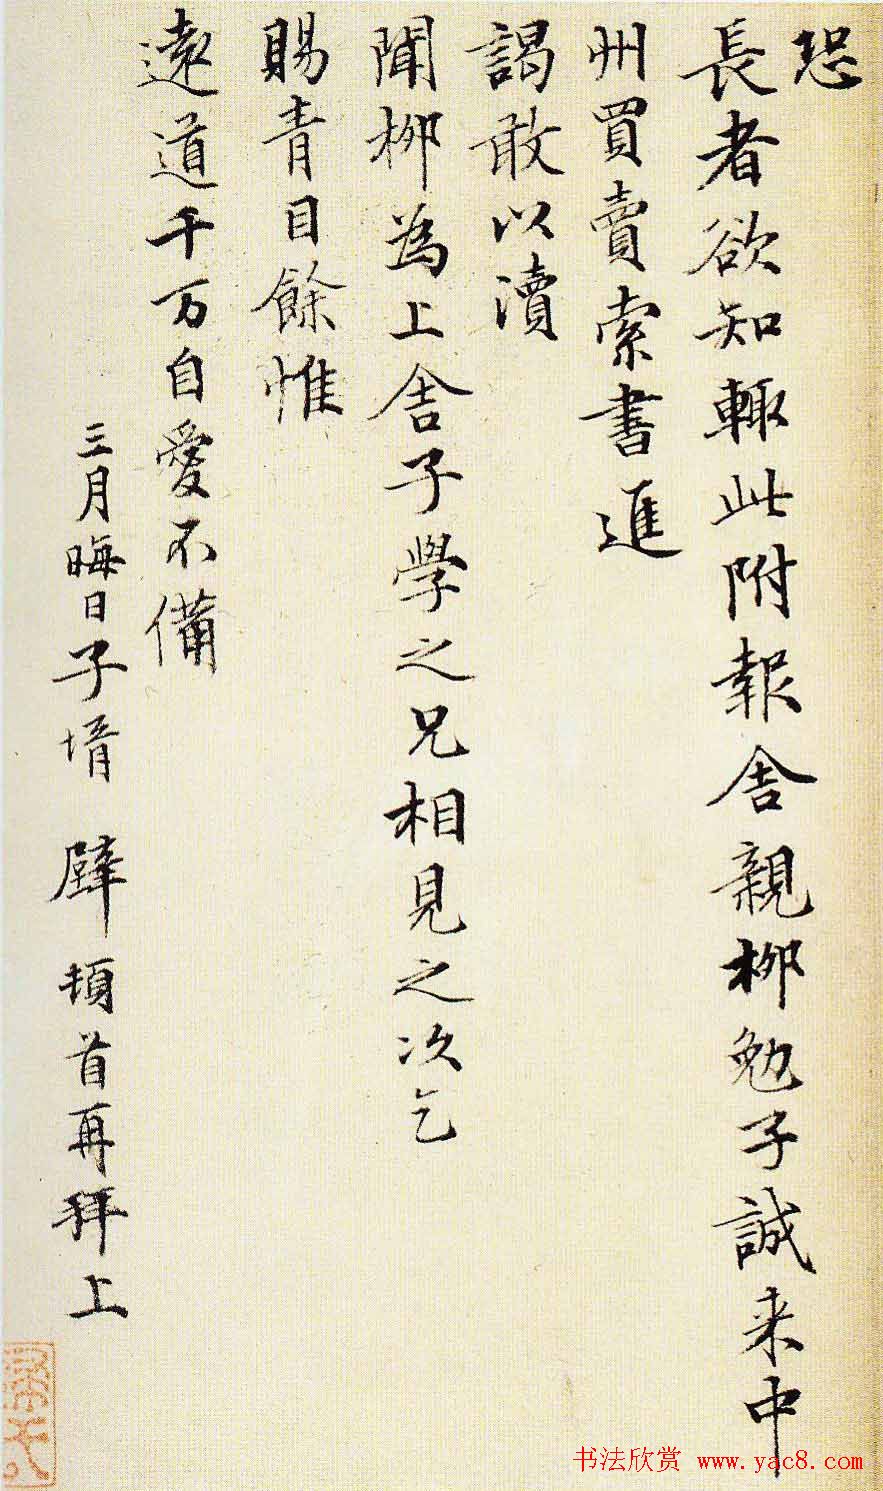 恐
長者欲知輙此附報舍親柳勉子誠来中
州買賣索書進
謁敢以瀆
聞柳為上舍子學之兄相見之次乞
賜青目餘惟
遠道千万自愛不備
三月晦日子壻 頓首再拜上
书法欣赏 www.yac8.com